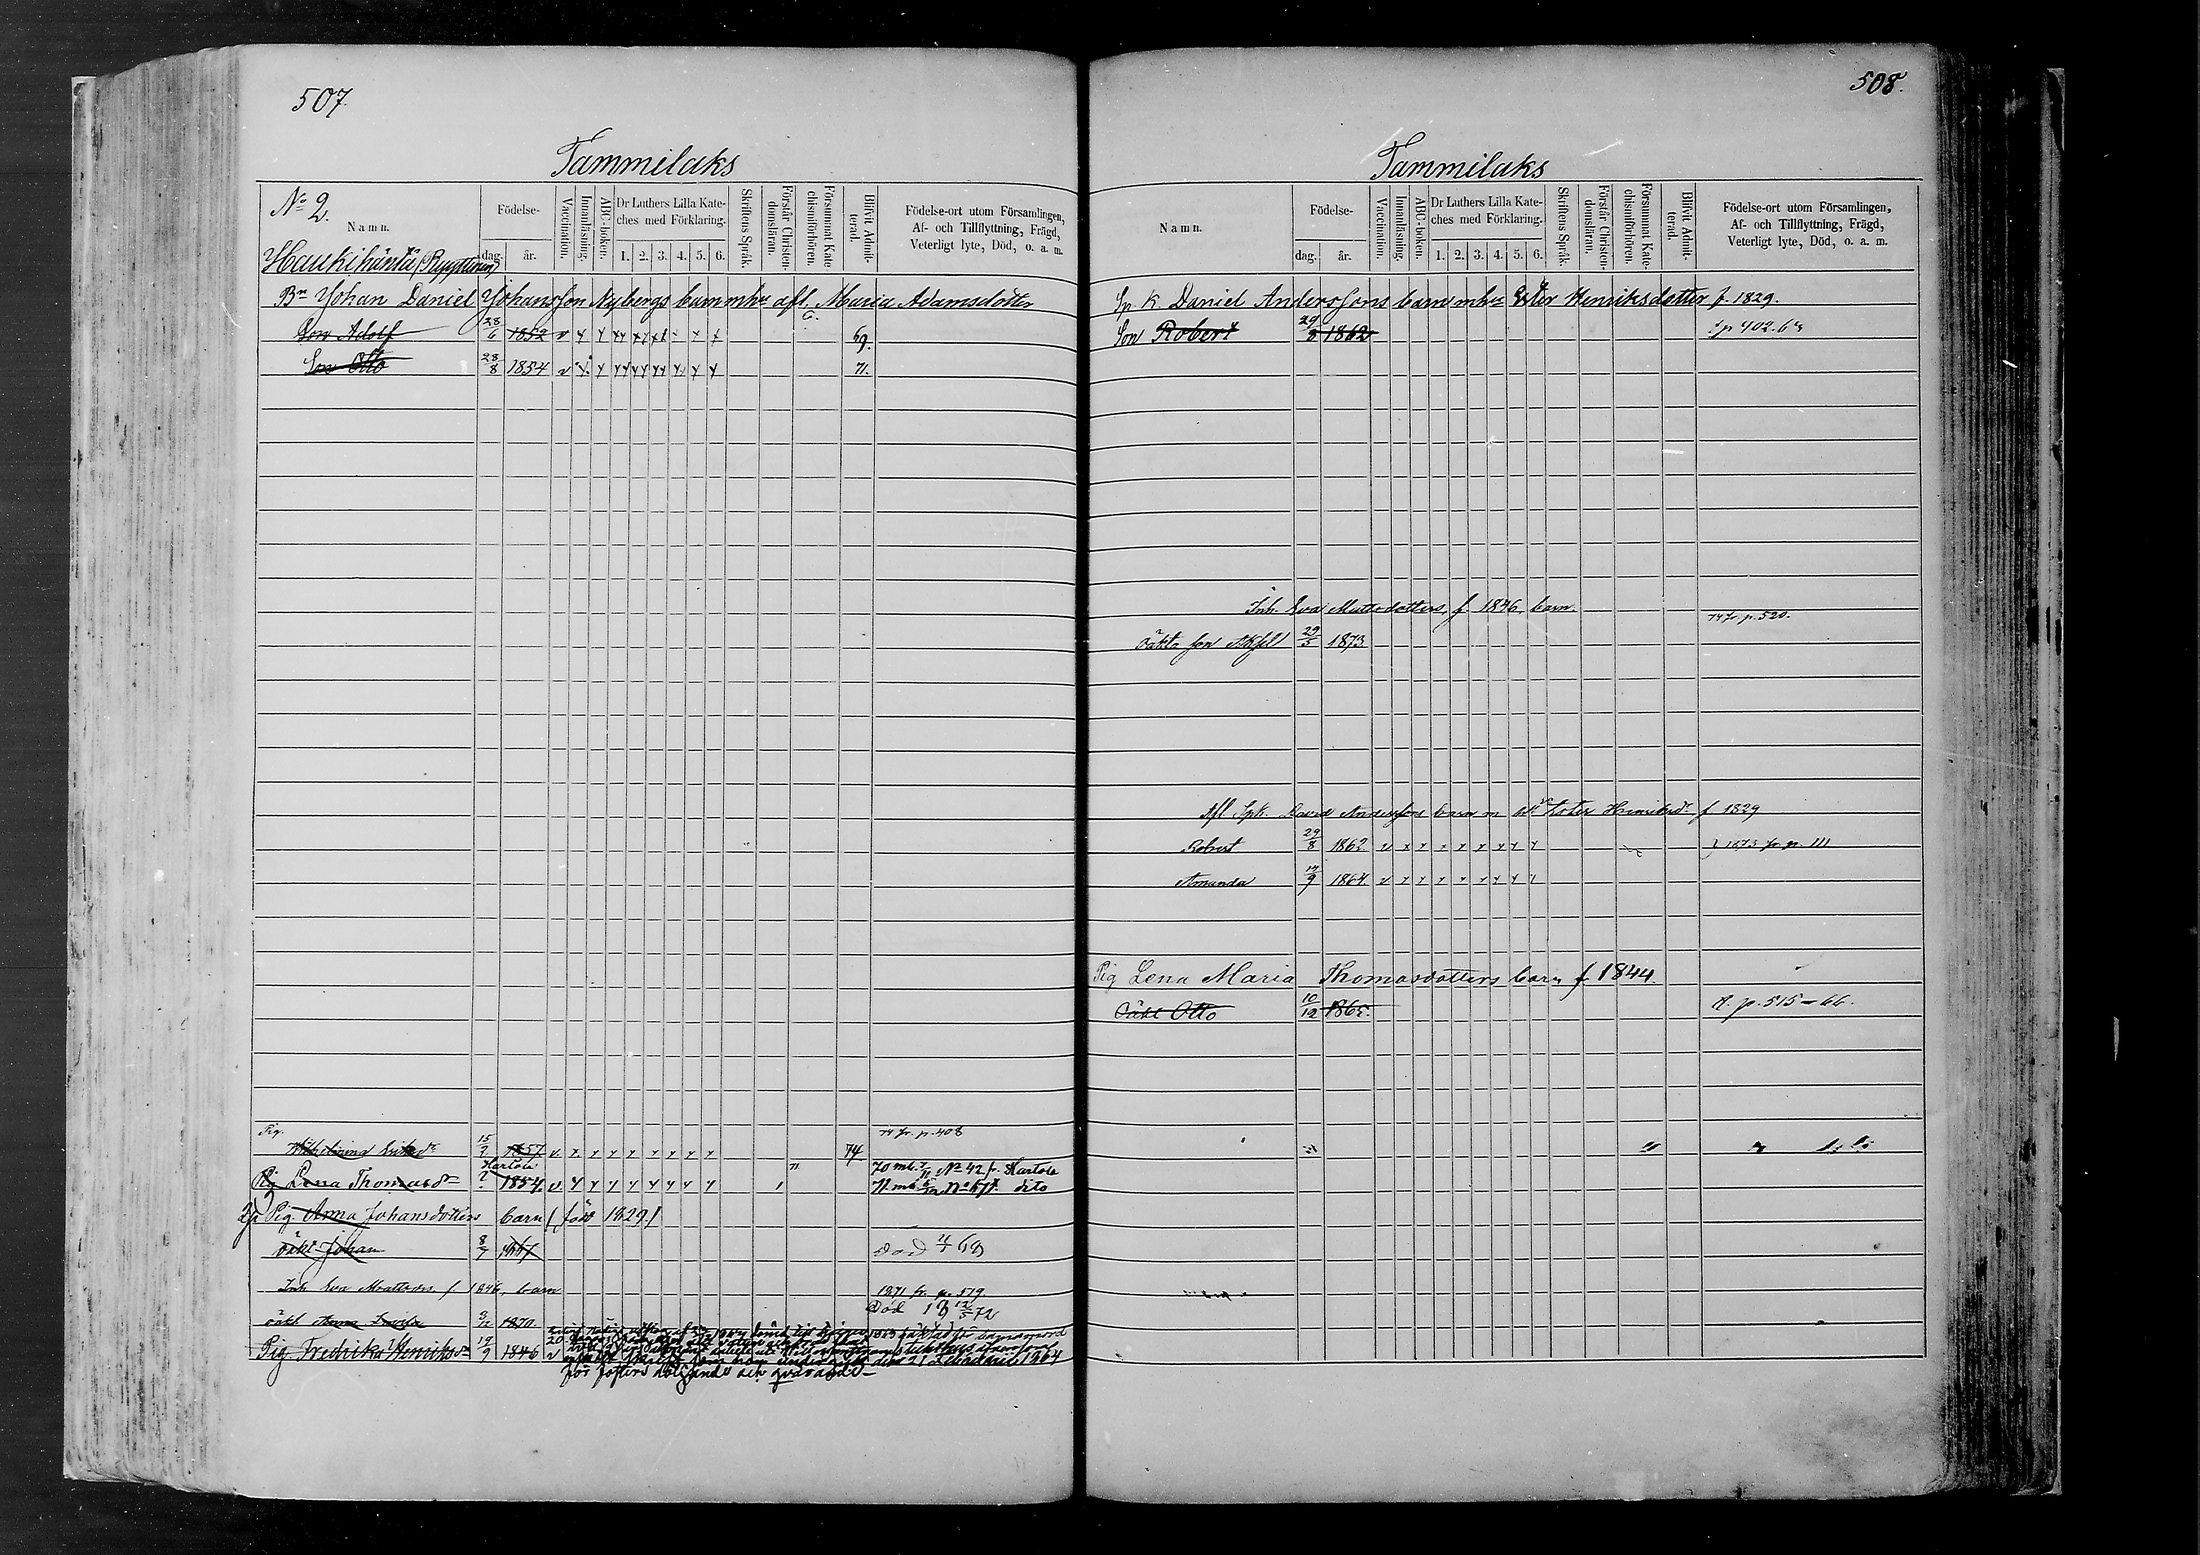 507.
Tammilaks
No 2.
Namn.
Födelse-
dag.
år.
Vaccination.
Innanläsning.
ABC-boken.
Dr Luthers Lilla Kate-
ches med Förklaring.
1. 2. 3. 4. 5. 6.
Skriftens Språk.
Förstår Christen-
domsläran.
Försummat Kate
chismiförhören.
Blifvit Admit-
terad.
Födelse-ort utom Församlingen,
Af- och Tillflyttning, Frägd,
Veterligt lyte, Död, o. a. m.
Haukihänta
Bn Johan Daniel Johansson Nybergs barn mhu afl. Maria Adamsdotter
Son Adolf 28/6 1852 v 69.
Son Otto 28/8 1854 v 71.
Pig. 74 fr. p. 408
15 1857 v 74
Hartola 70 No 42 fr. Hartola
Pig Lena Thomasdr 1854. v dito
Pig. Anna Johansdotters barn (född 1829)
oäkt Johan 8/7 1867 Död 68
Inh Eva Mattsdrs f 1846, barn 1871 fr. p. 519
oäkt Anna 1870. Död 18 72
Pig Fredrika Henriksdr 19/9 1846 v
för fosters döljande och
508.
Tammilaks
Namn.
Födelse-
dag.
år.
Vaccination.
Innanläsning.
ABC-boken.
Dr Luthers Lilla Kate-
ches med Förklaring.
1. 2. 3. 4. 5. 6.
Skriftens Språk.
Förstår Christen-
domsläran.
Försummat Kate-
chismiförhören.
Blifvit Admit-
terad.
Födelse-ort utom Församlingen,
Af- och Tillflyttning, Frägd,
Veterligt lyte, Död, o. a. m.
Sp. K Daniel Anderssons barn mhu Ester Henriksdotter f. 1829.
Son Robert 29/8 1862 p 402.
Inh. Eva Mattsdotters, f 1846, barn. 74 fr p. 520.
oäkta son Axel 29/5 1873.
Afl Spk. David Anderssons barn m Ester Henriksdr f 1829
Robert 29/8 1862 v 1873 fr p. 111
Amanda 14/9 1864. v
Pig Lena Maria Thomasdotters barn f 1844.
oäkt Otto 10/12 1865. p. 515 - 66.